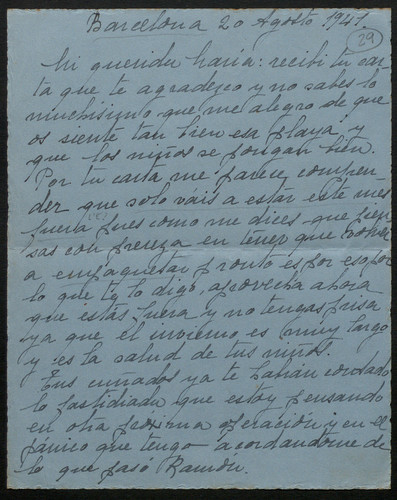 Barcelona 20 Agosto 1941.
29
Mi querida María: recibí tu car-
ta que te agradezco y no sabes lo
muchísimo que me alegro de que
os siente tan bien esa playa y
que los niños se pongan bien.
Por tu carta me parece compren-
der que solo váis a estar este mes
fuera pues como me dices que pien-
sas con pereza en tener que volver
a empaquetar pronto es por eso por
lo que te lo digo, aprovecha ahora
que estás fuera y no tengas prisa
ya que el invierno es muy largo
y es la salud de tus niños.
Tus cuñados ya te habrán contado
lo fastidiada que estoy pensando
en otra próxima operación y en el
pánico que tengo acordandome de
lo que pasó Ramón.